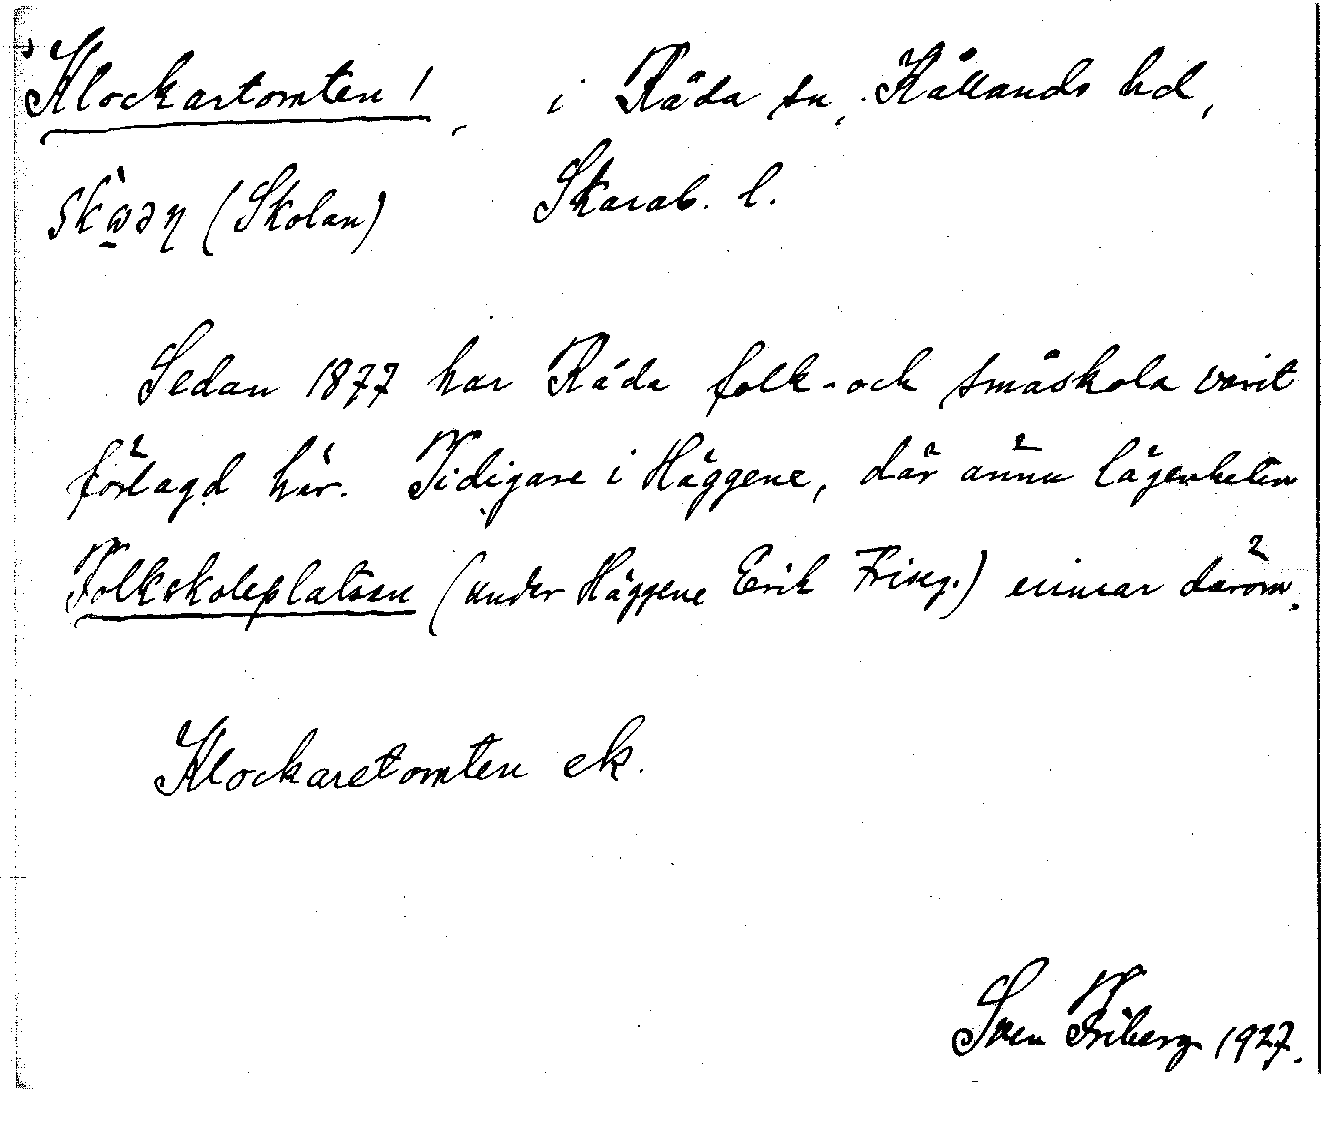 Klockartomten /, i Råda sn, Kållands hd,
(Skolan) Skarab. l.
Sedan 1877 har Råda folk- och småskola varit
förlagd här. Tidigare i Häggene, där ännu lägenheten
Folkskoleplatsen (under Häggene Erik) erinrar därom.
Klockaretomten ek.
Sven Friberg 1927.